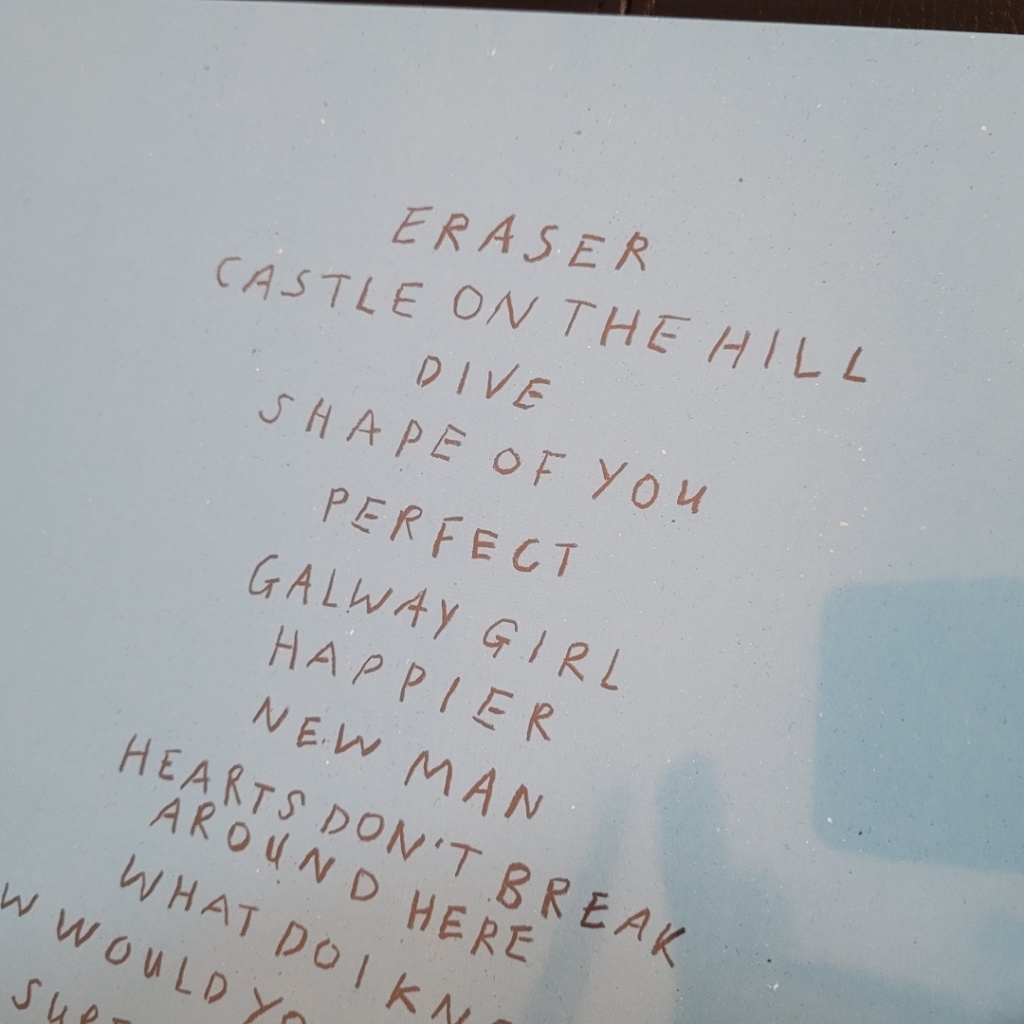 ERASER
CASTLE ON THE HILL
DIVE
SHAPE OF YOU
PERFECT
GALWAY GIRL
HAPPIER
NEW MAN
HEARTS DON'T BREAK
AROUND HERE
WHAT DO I
WOULD